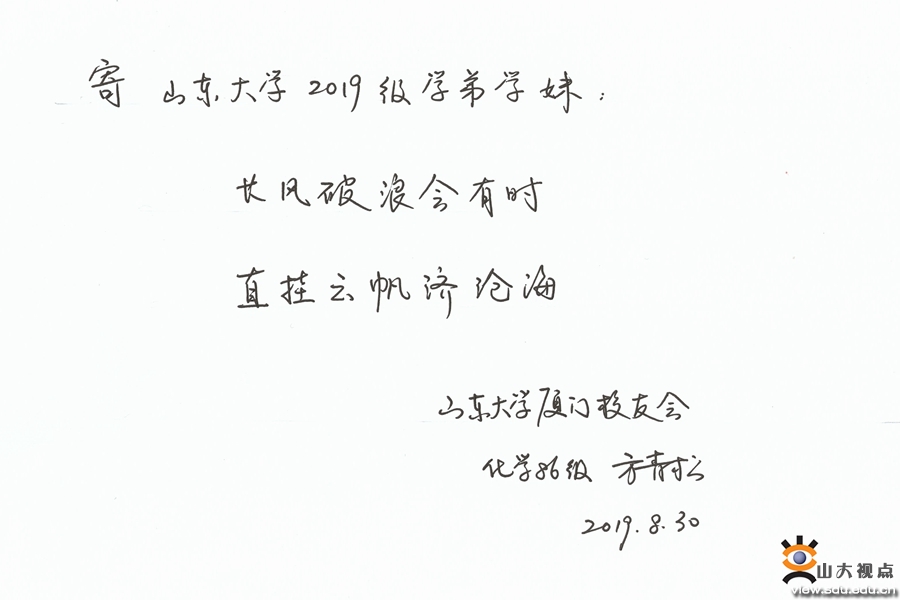 寄 山东大学2019级学弟学妹：
长风破浪会有时
直挂云帆济沧海
山东大学厦门校友会
化学86级 方青松
2019.8.30
山大视点
view.sdu.edu.cn